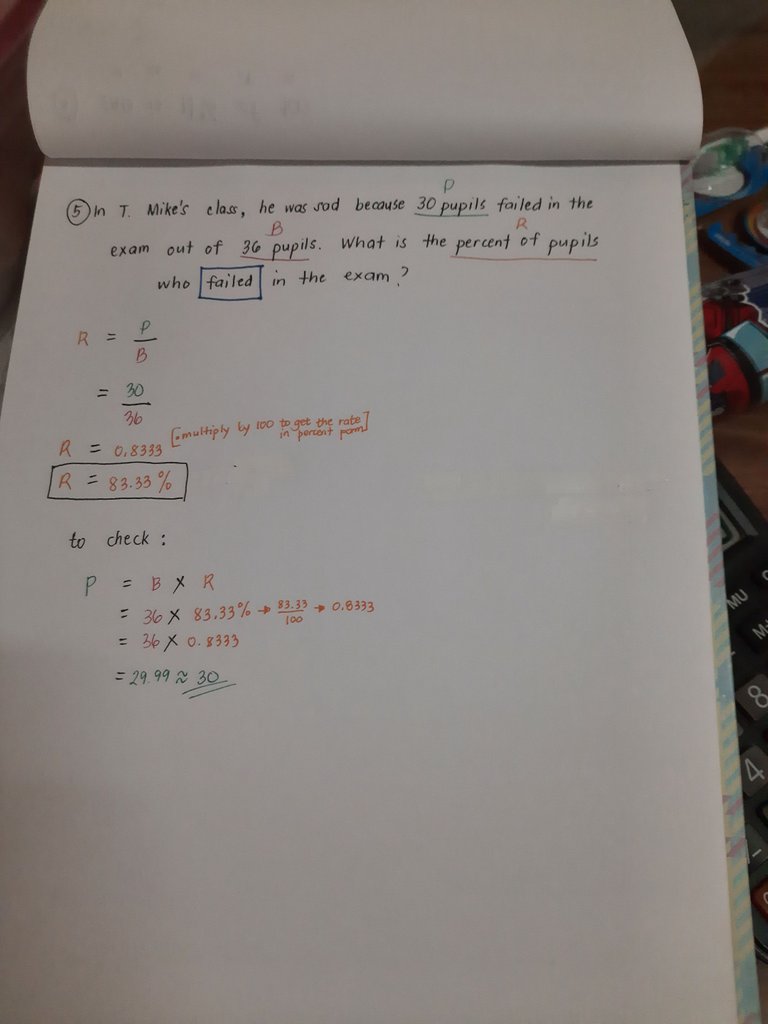 P
⑤ In T. Mike's class, he was sad because 30 pupils failed in the
B R
exam out of 36 pupils. What is the percent of pupils
who failed in the exam?
R = P/B
= 30/36
R = 0.8333 [• multiply by 100 to get the rate
in percent form]
R = 83.33%
to check :
P = B × R
= 36 × 83.33% → 83.33/100 → 0.8333
= 36 × 0.8333
= 29.99 ≈ 30
MU
M+
8
4